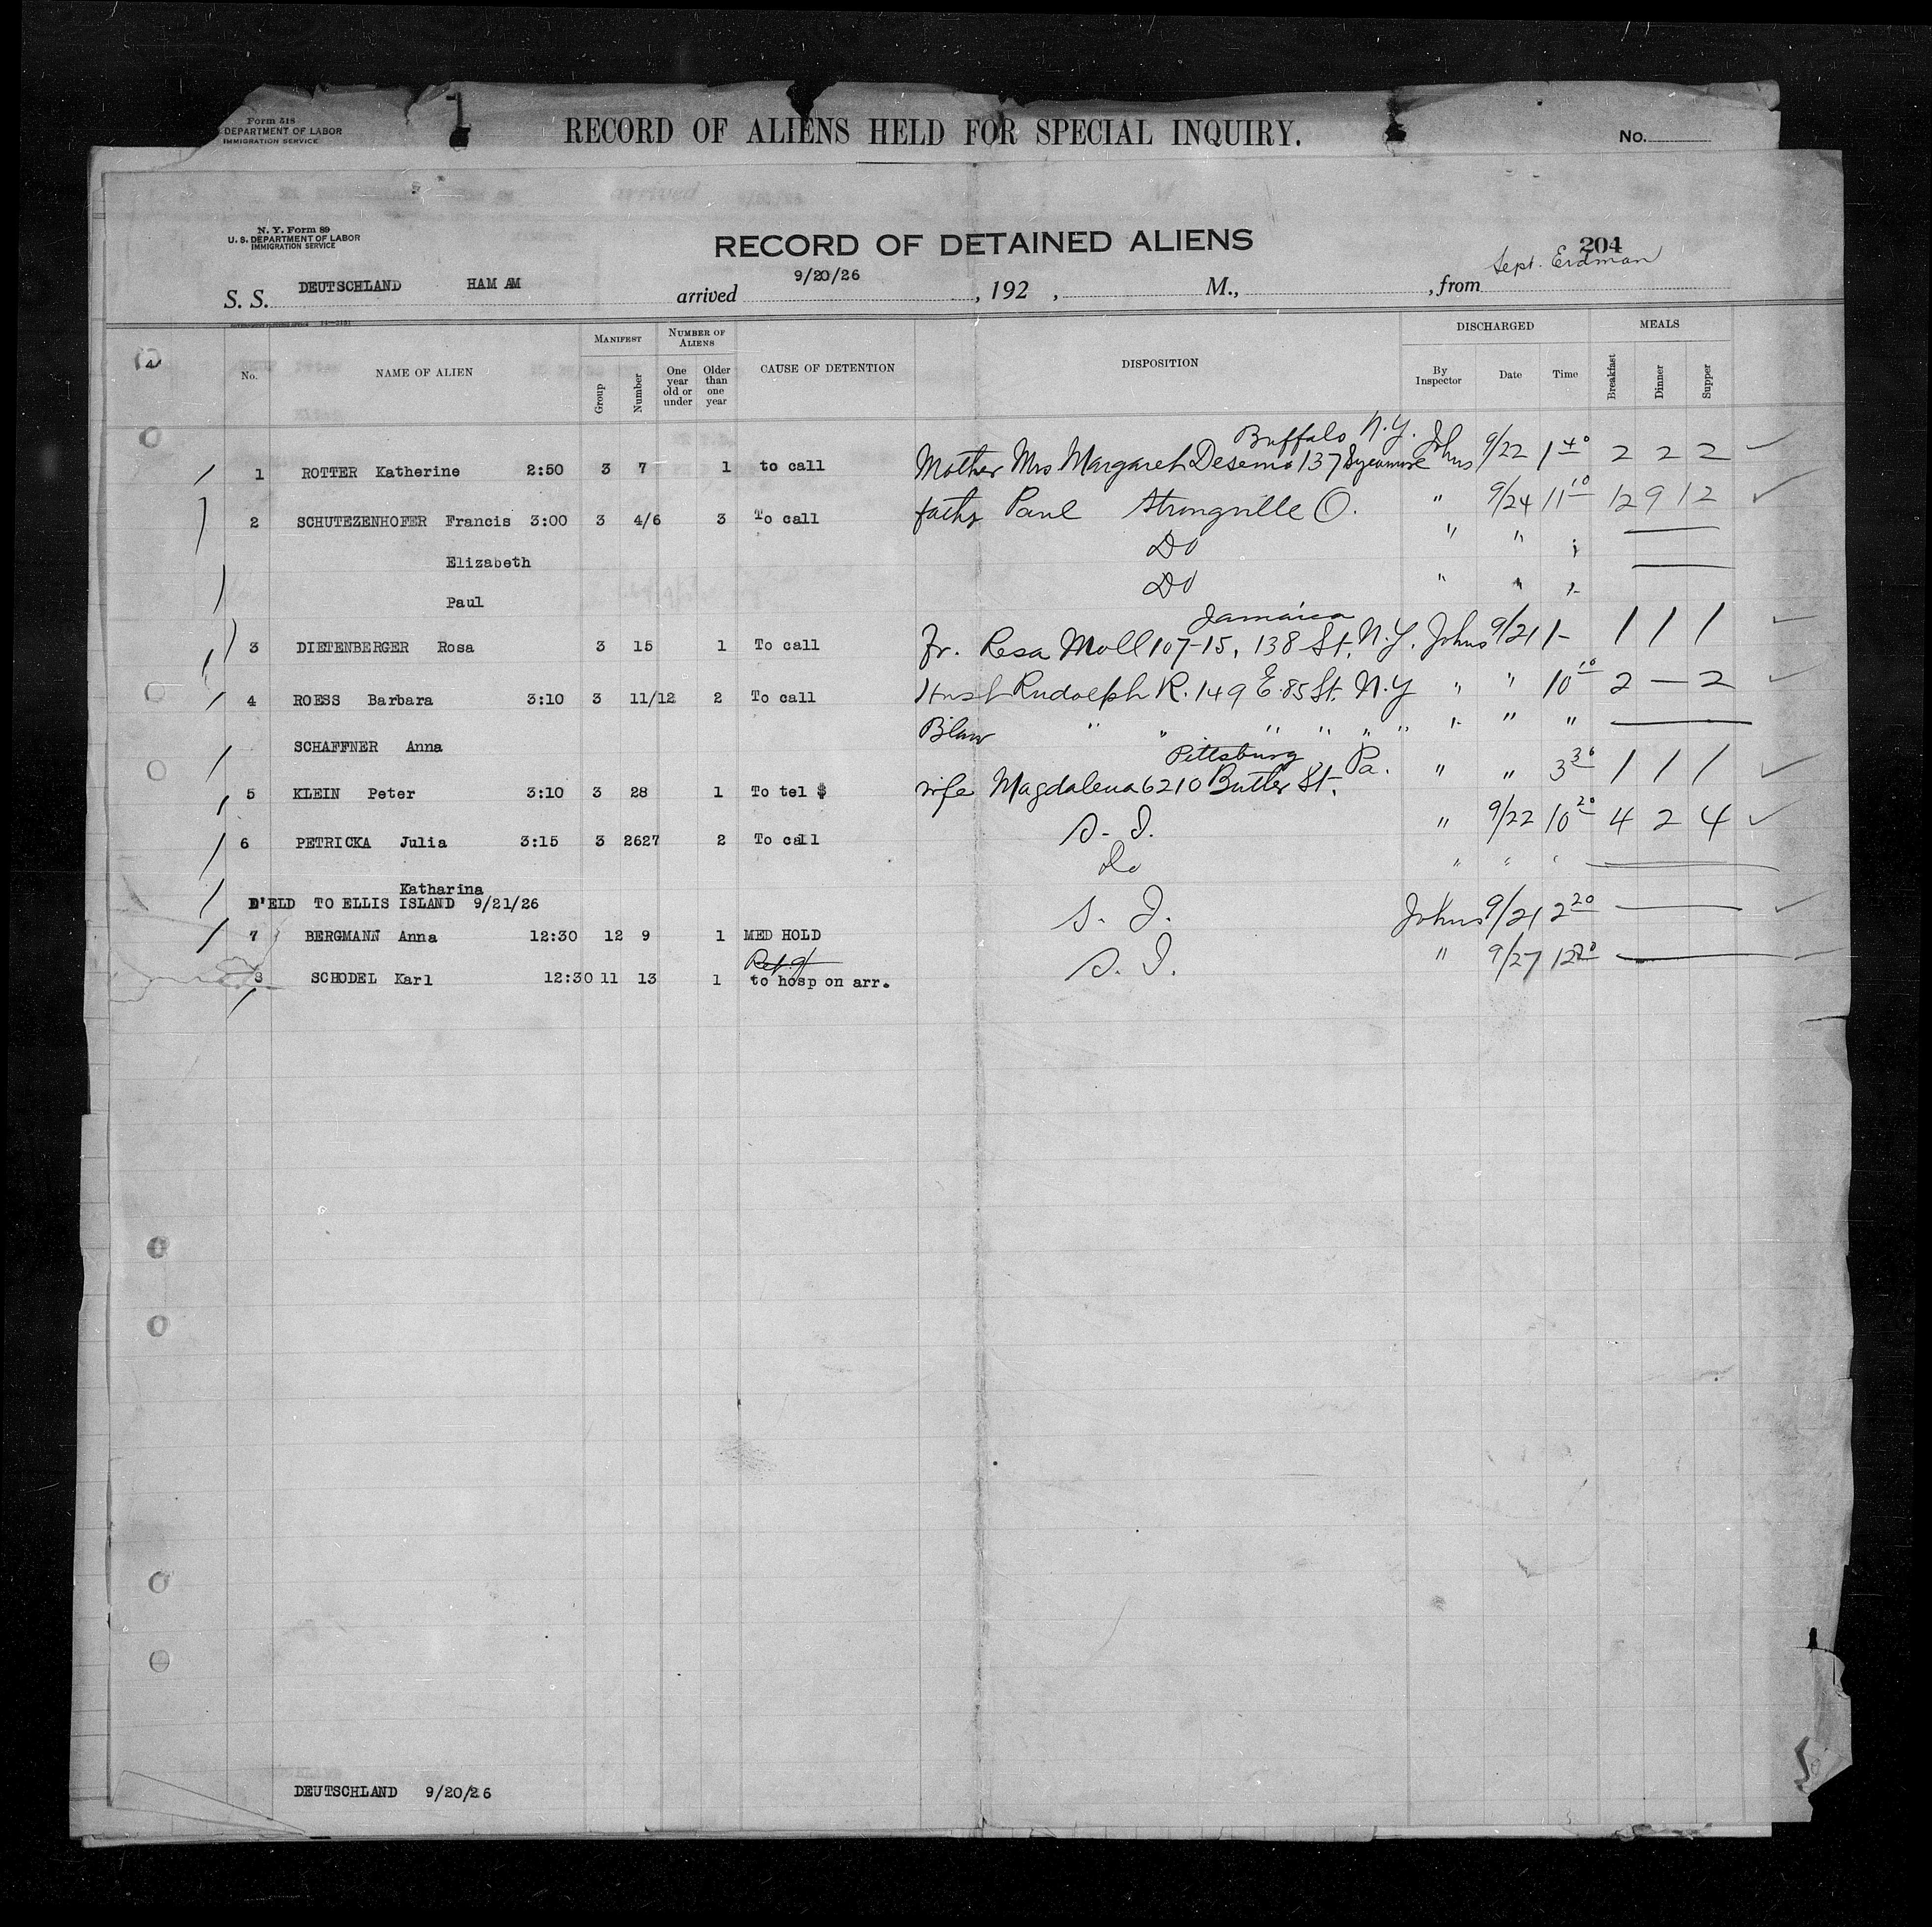 Form 518
DEPARTMENT OF LABOR
IMMIGRATION SERVICE
RECORD OF ALIENS HELD FOR SPECIAL INQUIRY.
No.
N. Y. Form 89
U. S. DEPARTMENT OF LABOR
IMMIGRATION SERVICE
RECORD OF DETAINED ALIENS
204
Sept. Erdman
S. S. DEUTSCHLAND HAM AM arrived 9/20/26, 192 , M., , from
No. NAME OF ALIEN MANIFEST Group Number NUMBER OF ALIENS One year old or under Older than one year CAUSE OF DETENTION DISPOSITION DISCHARGED By Inspector Date Time MEALS Breakfast Dinner Supper
Buffalo N.Y.
1 ROTTER Katherine 2:50 3 7 1 to call Mother Mrs Margareth Desemo 137 Sycamore Johns 9/22 1 40 2 2 2
2 SCHUTEZENHOFER Francis 3:00 3 4/6 3 To call fathr Paul Strongville O. " 9/24 11 10 12 9 12
Elizabeth Do " " "
Paul Do " " "
Jamaica
3 DIETENBERGER Rosa 3 15 1 To call Fr. Resa Moll 107-15, 138 St. N.Y. Johns 9/21 1- 1 1 1
4 ROESS Barbara 3:10 3 11/12 2 To call Husb Rudolph R. 149 E. 85 St. N.Y " " 10 10 2 — 2
SCHAFFNER Anna Blaw " " " " " " " " "
Pittsburg Pa.
5 KLEIN Peter 3:10 3 28 1 To tel $ wife Magdalena 6210 Butler St. " " 3 30 1 1 1
6 PETRICKA Julia 3:15 3 2627 2 To call S. I. " 9/22 10 20 4 2 4
Katharina Do " " "
D'ELD TO ELLIS ISLAND 9/21/26
7 BERGMANN Anna 12:30 12 9 1 MED HOLD S. I. Johns 9/21 2 20
8 SCHODEL Karl 12:30 11 13 1 to hosp on arr. S. I. " 9/27
DEUTSCHLAND 9/20/26